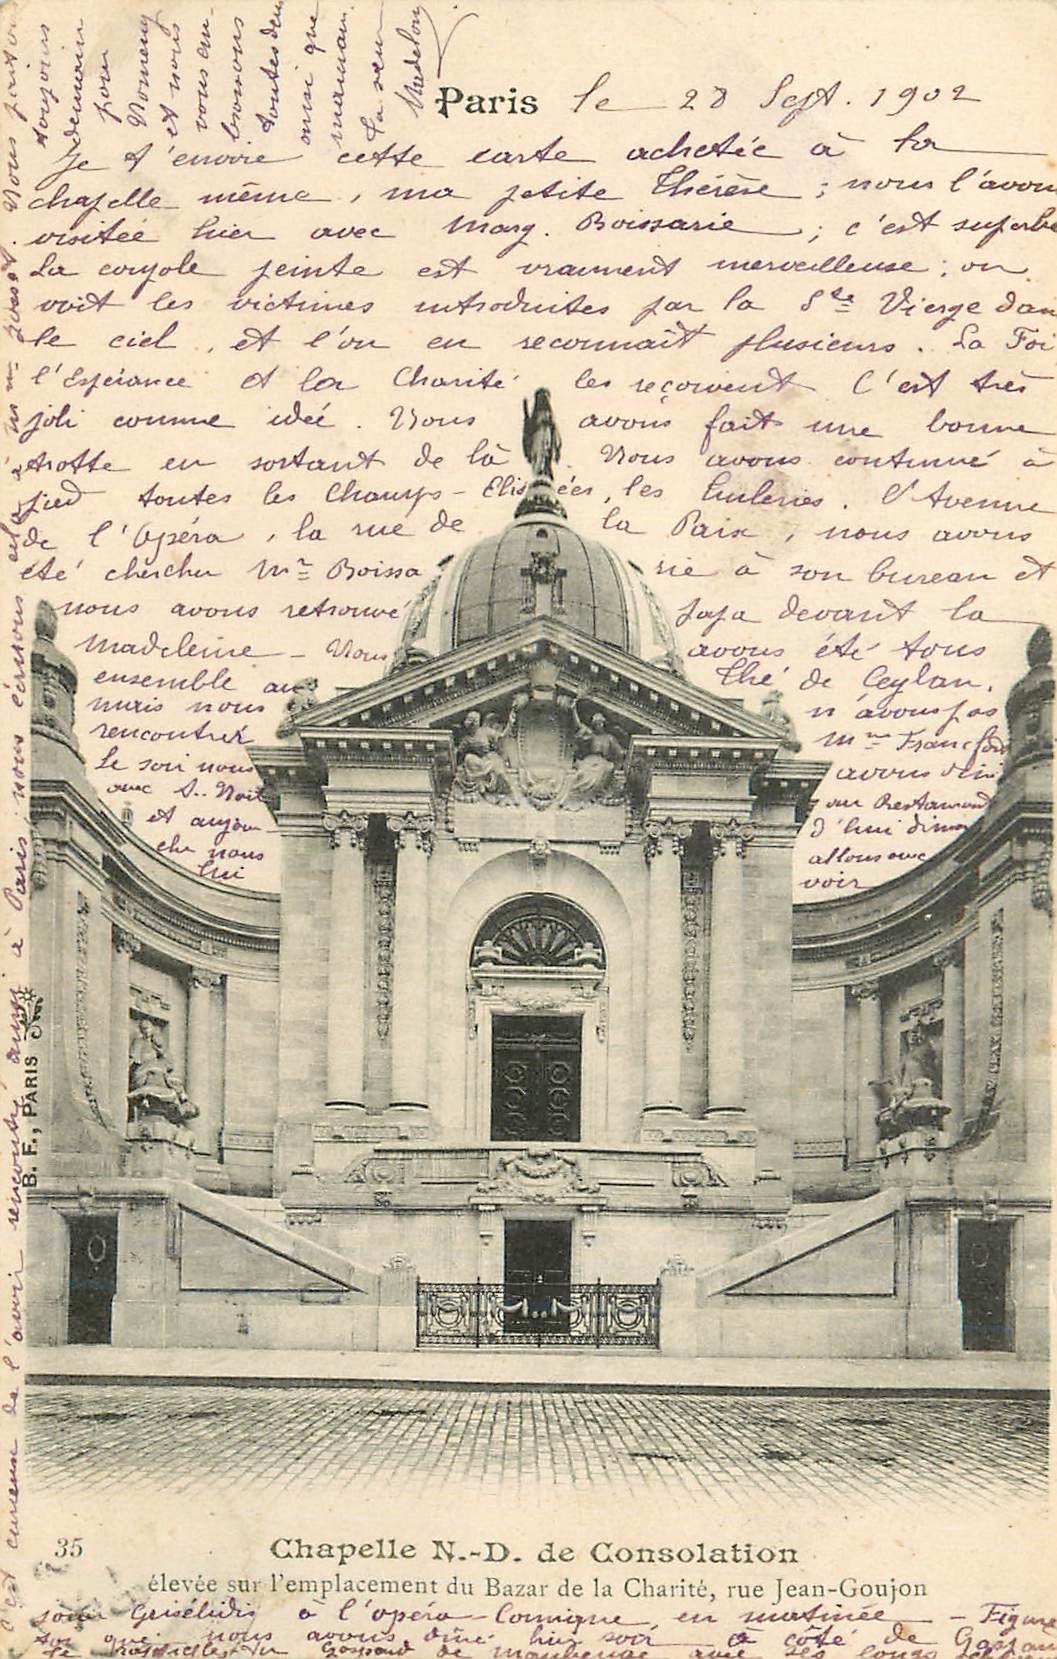 Paris le 28 Sept. 1902
Je t'envoie cette carte achetée à la
chapelle même, ma petite Thérèse ; nous l'avons
visitée hier avec Marg. Boissarie ; c'est superbe
La coupole peinte est vraiment merveilleuse ; on
voit les victimes introduites par la Ste Vierge dans
le ciel, et l'on en reconnaît plusieurs. La Foi
l'Espérance et la Charité les reçoivent C'est très
joli comme idée. Nous avons fait une bonne
trotte en sortant de là. Nous avons continué à
pied toutes les Champs-Elisées, les Tuileries. l'Avenue
de l'Opéra, la rue de la Paix, nous avons
été chercher Mr Boissarie à son bureau et
nous avons retrouvé papa devant la
Madeleine - Nous avons été tous
ensemble au Thé de Ceylan,
mais nous n'avons pas
rencontrer Mme
Le soir nous avons dîné
avec au Restaurant
et aujourd'hui dim
che nous allons avec
lui voir
B. F., PARIS
35
Chapelle N.-D. de Consolation
élevée sur l'emplacement du Bazar de la Charité, rue Jean-Goujon
Grisélidis à l'opéra-Comique en matinée - Figure
toi que nous avons dîné hier soir à côté de
de Maubeuge avec ses
c'est curieux de l'avoir rencontré ainsi à Paris ; nous écrivons cela à
Nous partons
toujours
demain
pour
Nomeny
et nous
vous em-
brassons
toutes deux
ainsi que
maman.
Ta sœur
Madelon